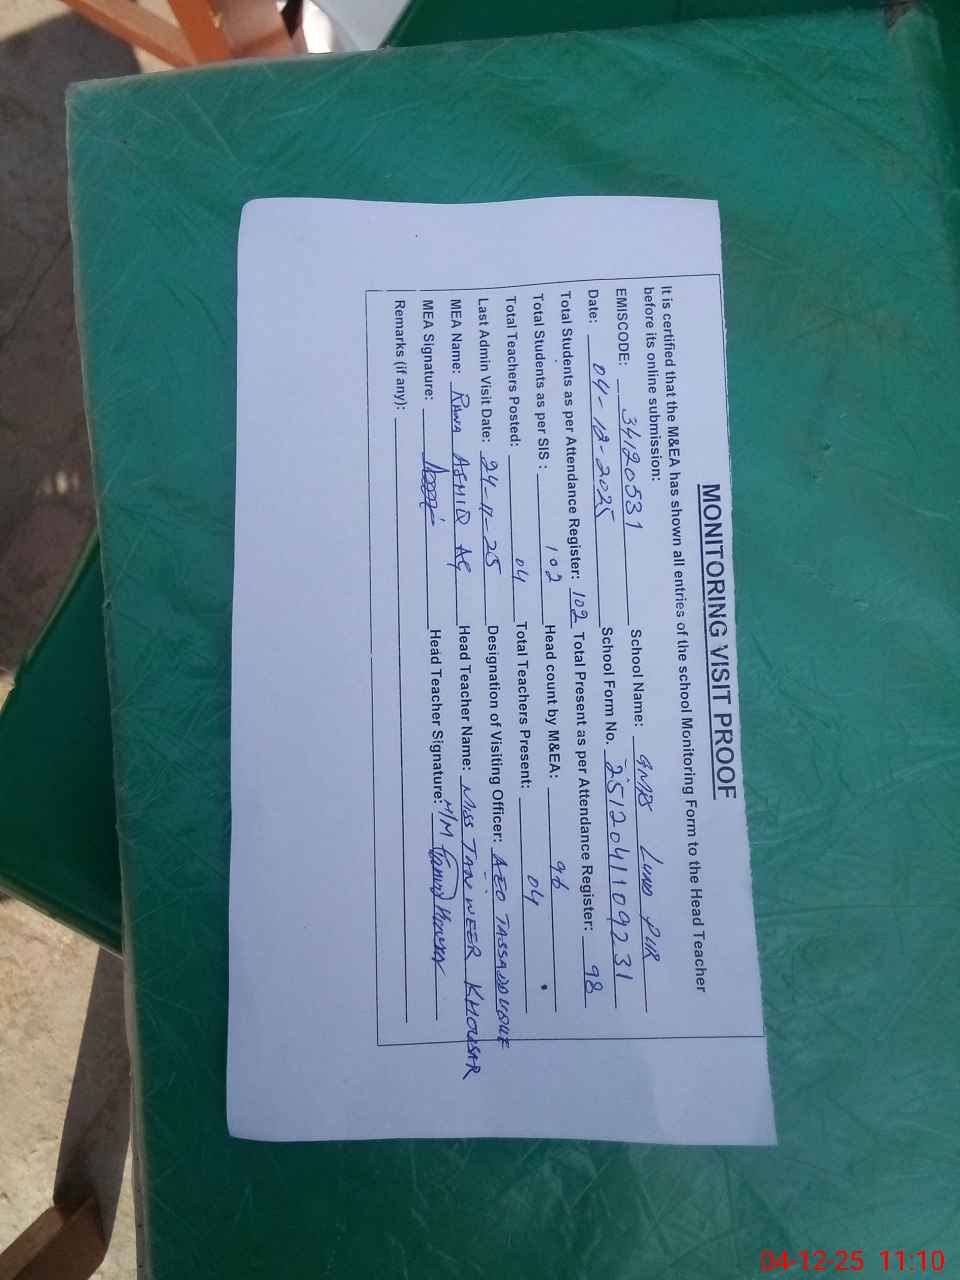 MONITORING VISIT PROOF
It is certified that the M&EA has shown all entries of the school Monitoring Form to the Head Teacher
before its online submission:
EMISCODE: 34120531 School Name: GMPS LUND PUR
Date: 04-12-2025 School Form No. 2512041109231
Total Students as per Attendance Register: 102 Total Present as per Attendance Register: 98
Total Students as per SIS : 102 Head count by M&EA: 96
Total Teachers Posted: 04 Total Teachers Present: 04
Last Admin Visit Date: 24-11-25 Designation of Visiting Officer: AEO TASSADDUQUE
MEA Name: RANA ASHIQ Head Teacher Name: MISS TANWEER KHOUSAR
MEA Signature: Head Teacher Signature: H/M
Remarks (if any):
04-12-25 11:10